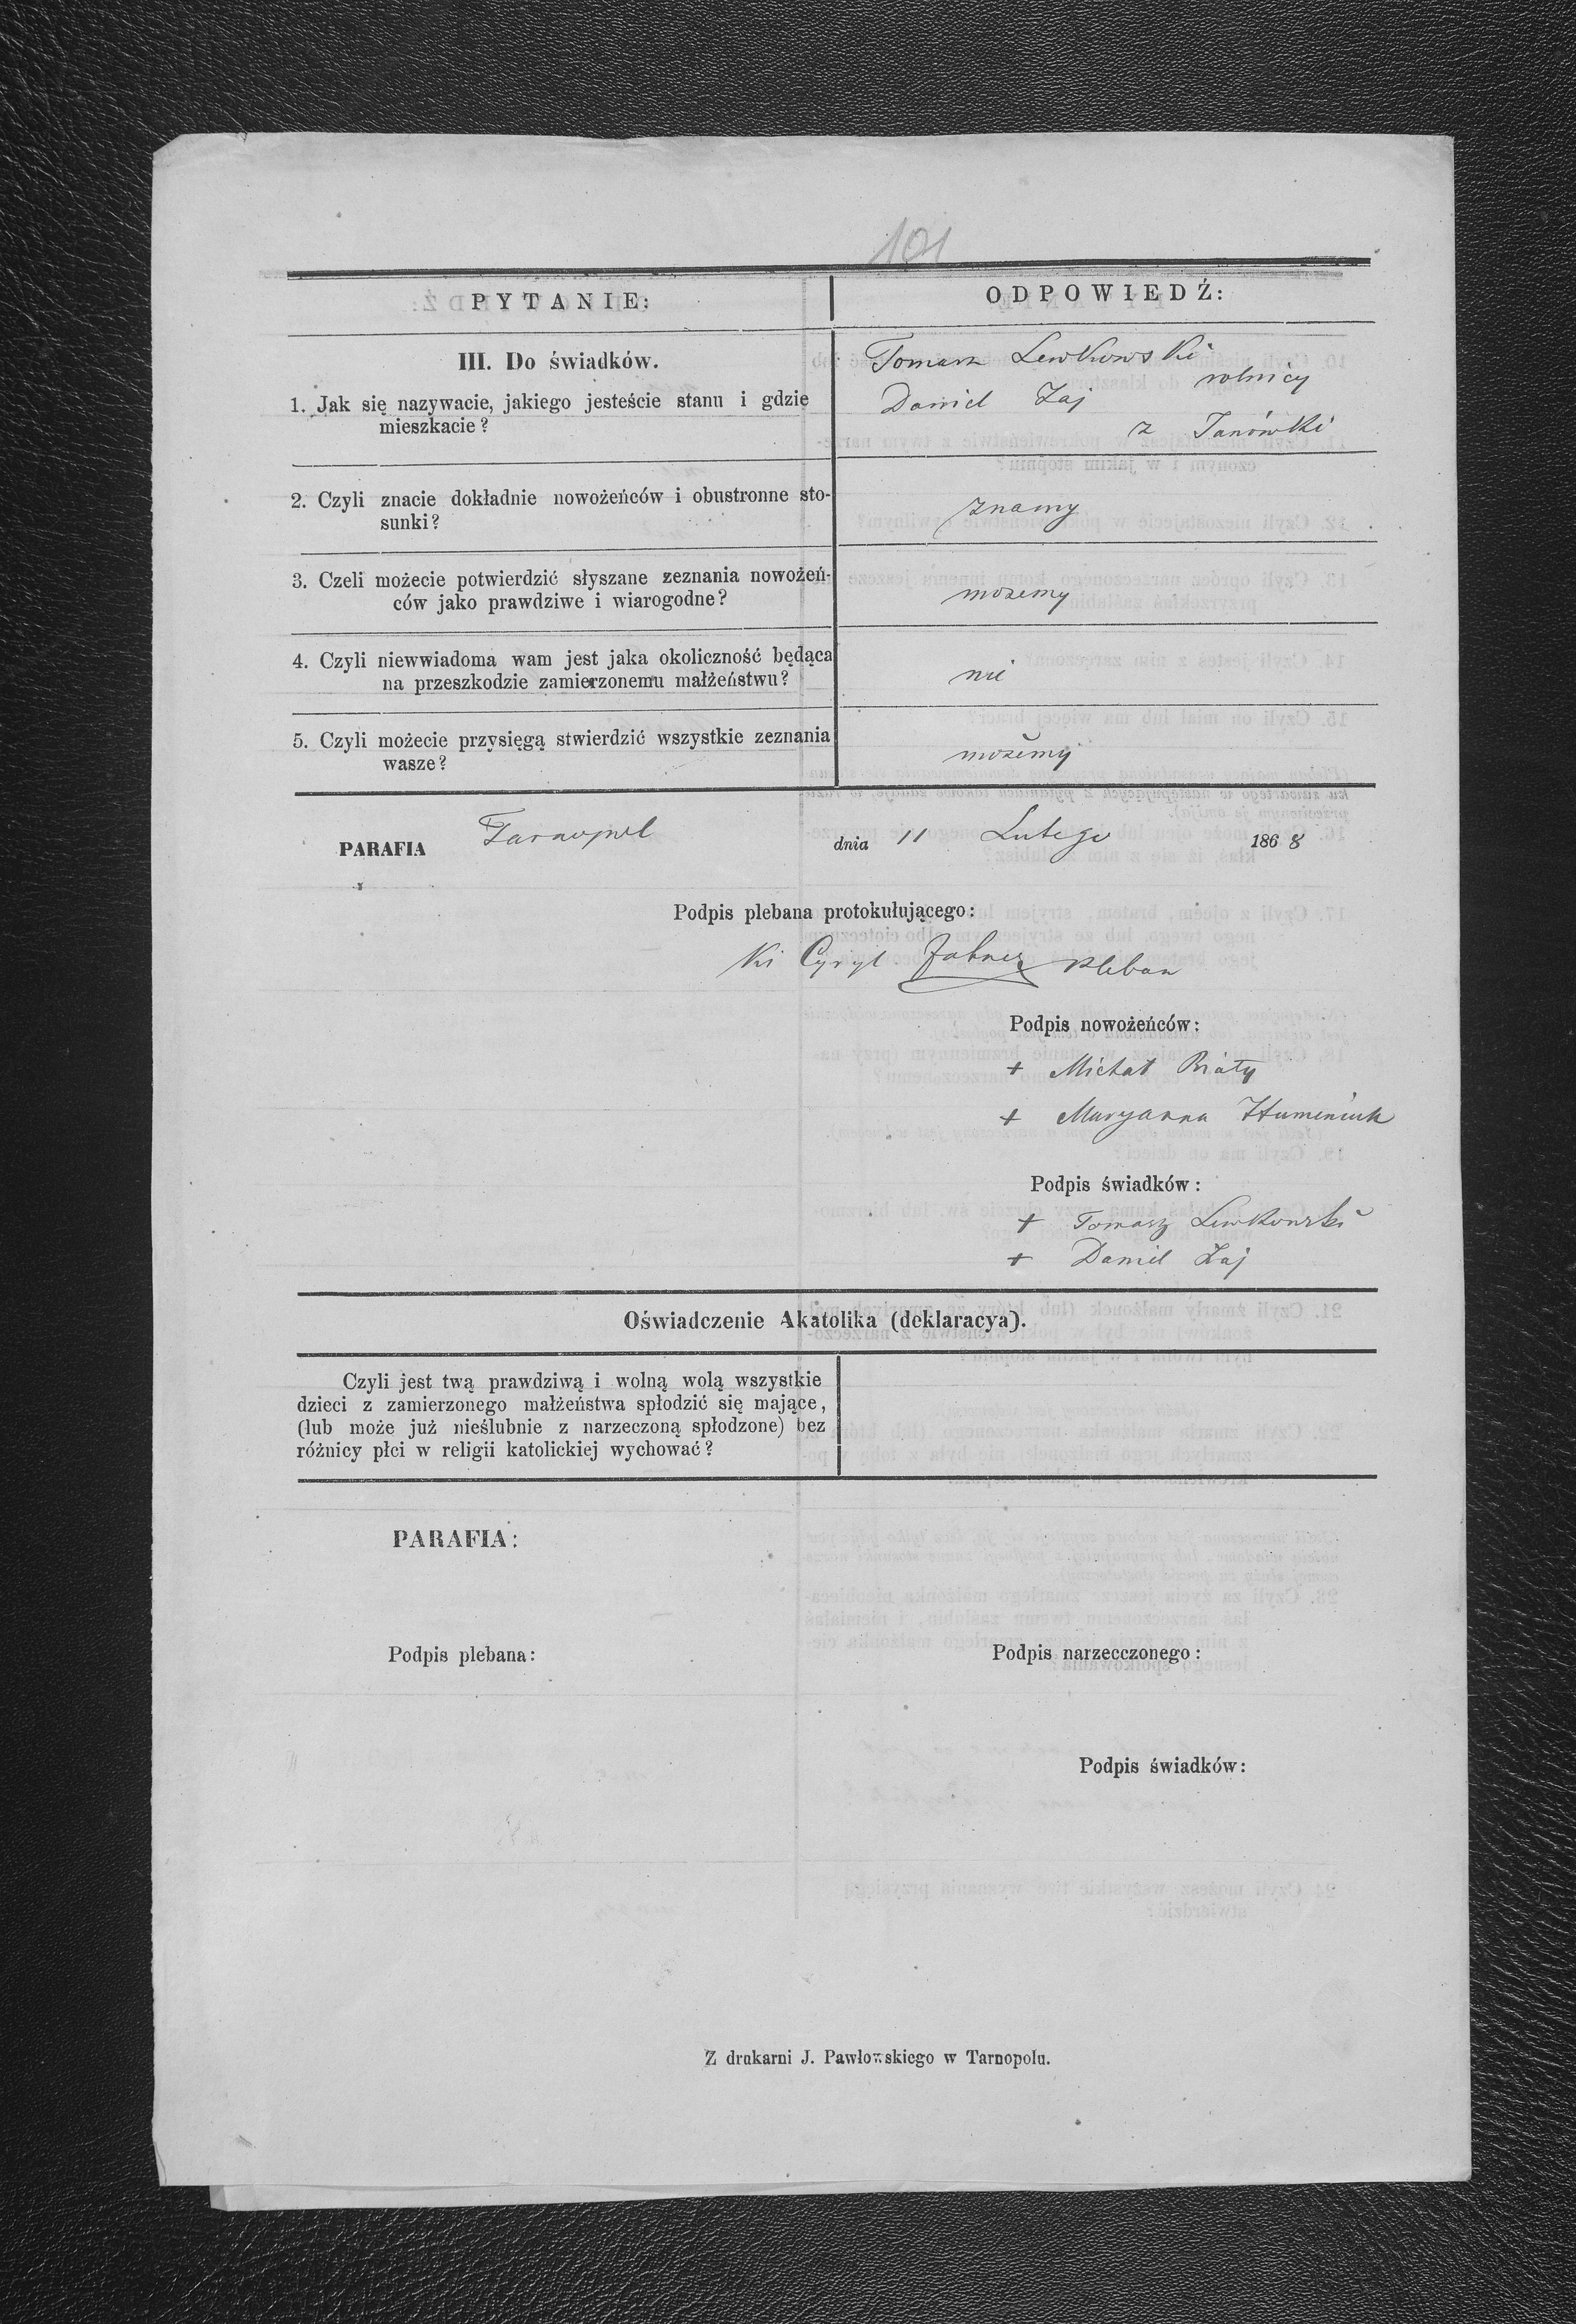 101
PYTANIE:
ODPOWIEDŹ:
III. Do świadków.
1. Jak się nazywacie, jakiego jesteście stanu i gdzie
mieszkacie?
Tomasz Lewkowski
rolnicy
Daniel Zaj
z Janówki
2. Czyli znacie dokładnie nowożeńców i obustronne sto-
sunki?
znamy
3. Czeli możecie potwierdzić słyszane zeznania nowożeń-
ców jako prawdziwe i wiarogodne?
możemy
4. Czyli niewwiadoma wam jest jaka okoliczność będąca
na przeszkodzie zamierzonemu małżeństwu?
nie
5. Czyli możecie przysięgą stwierdzić wszystkie zeznania
wasze?
możemy
PARAFIA Tarnopol dnia 11 Lutego 1868
Podpis plebana protokułującego:
Cyryl pleban
Podpis nowożeńców:
+ Michał Biały
+ Maryanna Humeniuk
Podpis świadków:
+ Tomasz Lewkowski
+ Daniel Zaj
Oświadczenie Akatolika (deklaracya).
Czyli jest twą prawdziwą i wolną wolą wszystkie
dzieci z zamierzonego małżeństwa spłodzić się mające,
(lub może już nieślubnie z narzeczoną spłodzone) bez
różnicy płci w religii katolickiej wychować?
PARAFIA:
Podpis plebana:
Podpis narzecczonego:
Podpis świadków:
Z drukarni J. Pawłowskiego w Tarnopolu.